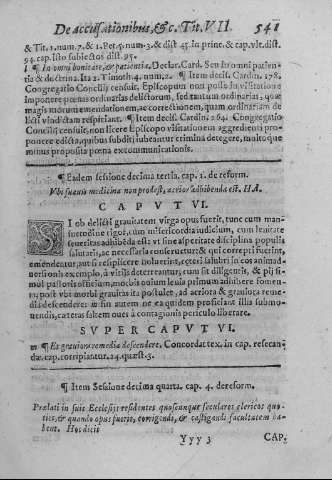 De accusationibus, &c. Tit. VII. 541
& Tit. 1. num. 7. & 1. Pet. 5. num. 3. & dist. 45. in princ. & cap. vlt. dist.
94. cap. isto subiectos dist. 95.
l ¶ In omni bonitate, & patientia. Declar. Card. Seu in omni patien-
tia & doctrina. Ita 2. Timoth. 4. num. 2. ¶ Item decis. Cardin. 178.
Congregatio Concilij censuit, Episcopum non posse in visitatione
imponere pœnas ordinarias delictorum, sed tantum ordinarias, quæ
magis ad morum emendationem, ac correctionem, quam ordinariam de-
licti vindictam respiciant. ¶ Item decis. Cardin. 264. Congregatio
Concilij censuit, non licere Episcopo visitationem aggredienti propo-
nere edicta, quibus subditi iubeantur crimina detegere, multoque
minus proposita pœna excommunicationis.
¶ Eadem sessione decima tertia, cap. 1. de reform.
Vbi suauis medicina non prodest, acrior adhibenda est. HA.
CAPVT VI.
SI ob delicti grauitatem virga opus fuerit, tunc cum man-
suetudine rigor, cum misericordia iudicium, cum lenitate
seueritas adhibenda est: vt sine asperitate disciplina populis
salutaris, ac necessaria conseruetur: & qui correpti fuerint,
emendentur, aut si resipiscere noluerint, ceteri salubri in eos animad-
uersionis exemplo, à vitijs deterreantur, cum sit diligentis, & pij si-
mul pastoris officium, morbis ouium leuia primum adhibere fomen-
ta, post vbi morbi grauitas ita postulet, ad acriora, & grauiora reme-
dia descendere: sin autem ne ea quidem proficiant illis submo-
uendis, cæteras saltem oues à contagionis periculo liberare.
SVPER CAPVT VI.
m ¶ Et grauiora remedia descendere. Concordat tex. in cap. resecan-
dæ. cap. corripiantur. 24. quæst. 3.
¶ Item Sessione decima quarta. cap. 4. de reform.
Prælati in suis Ecclesijs residentes quoscunque seculares clericos quo-
ties, & quando opus fuerit, corrigendi, & castigandi facultatem ha-
bent. Hoc dicit
Yyy 3 CAP.